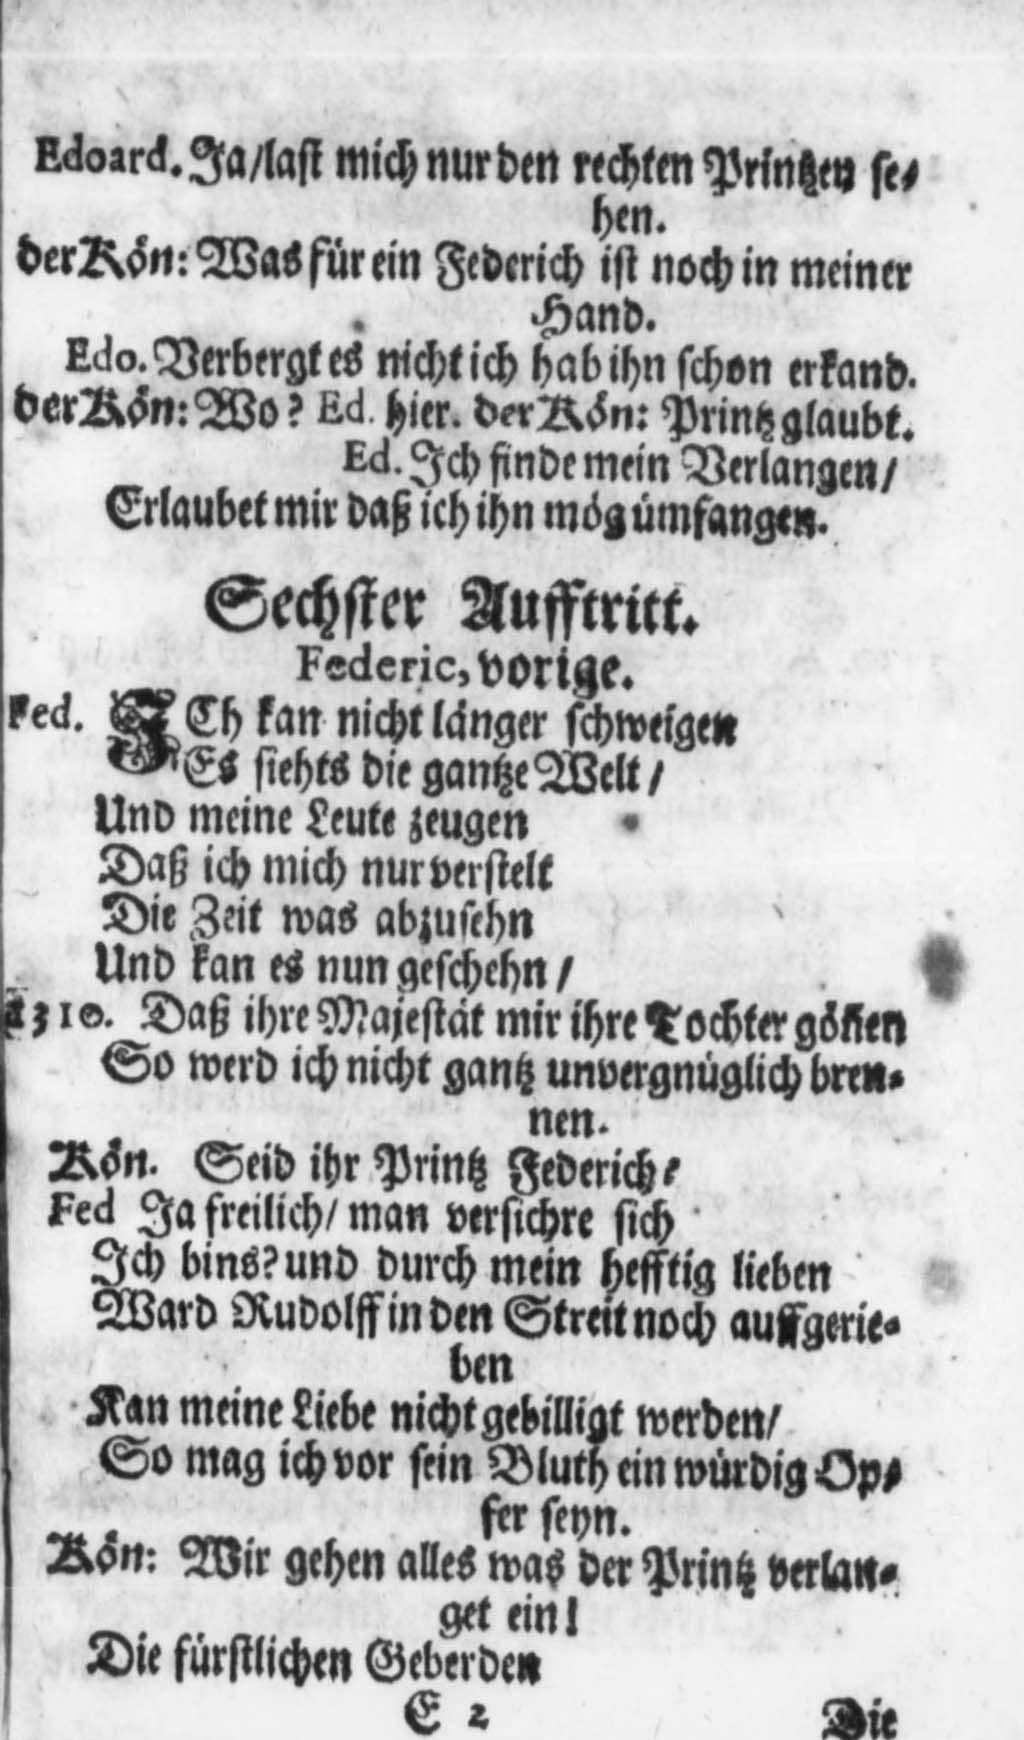 Edoard. Ja/last mich nur den rechten Printzen se-
hen.
der Kön: Was für ein Federich ist noch in meiner
Hand.
Edo. Verbergt es nicht ich hab ihn schon erkand.
der Kön: Wo? Ed. hier. der Kön: Printz glaubt.
Ed. Ich finde mein Verlangen/
Erlaubet mir daß ich ihn mög ümfangen.
Sechster Aufftritt.
Federic, vorige.
Fed. ICh kan nicht länger schweigen
Es siehts die gantze Welt/
Und meine Leute zeugen
Daß ich mich nur verstelt
Die Zeit was abzusehn
Und kan es nun geschehn/
310. Daß ihre Majestät mir ihre Tochter göñen
So werd ich nicht gantz unvergnüglich bren-
nen.
Kön. Seid ihr Printz Federich?
Fed Ja freilich/ man versichre sich
Ich bins? und durch mein hefftig lieben
Ward Rudolff in den Streit noch auffgerie-
ben
Kan meine Liebe nicht gebilligt werden/
So mag ich vor sein Bluth ein würdig Op-
fer seyn.
Kön: Wir gehen alles was der Printz verlan-
get ein!
Die fürstlichen Geberden
E 2 Die